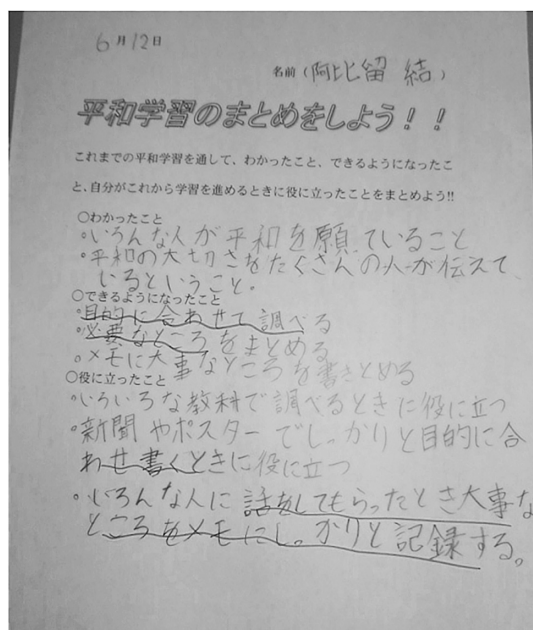 6月12日
名前(阿比留 結)
平和学習のまとめをしよう!!
これまでの平和学習を通して、わかったこと、できるようになったこ
と、自分がこれから学習を進めるときに役に立ったことをまとめよう!!
○わかったこと
・いろんな人が平和を願っていること
・平和の大切さをたくさんの人が伝えて
いるということ。
○できるようになったこと
・目的に合わせて調べる
・必要なところをまとめる
・メモに大事なところを書きとめる
○役に立ったこと
・いろいろな教科で調べるときに役に立つ
・新聞やポスターでしっかりと目的に合
わせ書くときに役に立つ
・いろんな人に話をしてもらったとき大事な
ところをメモにしっかりと記録する。